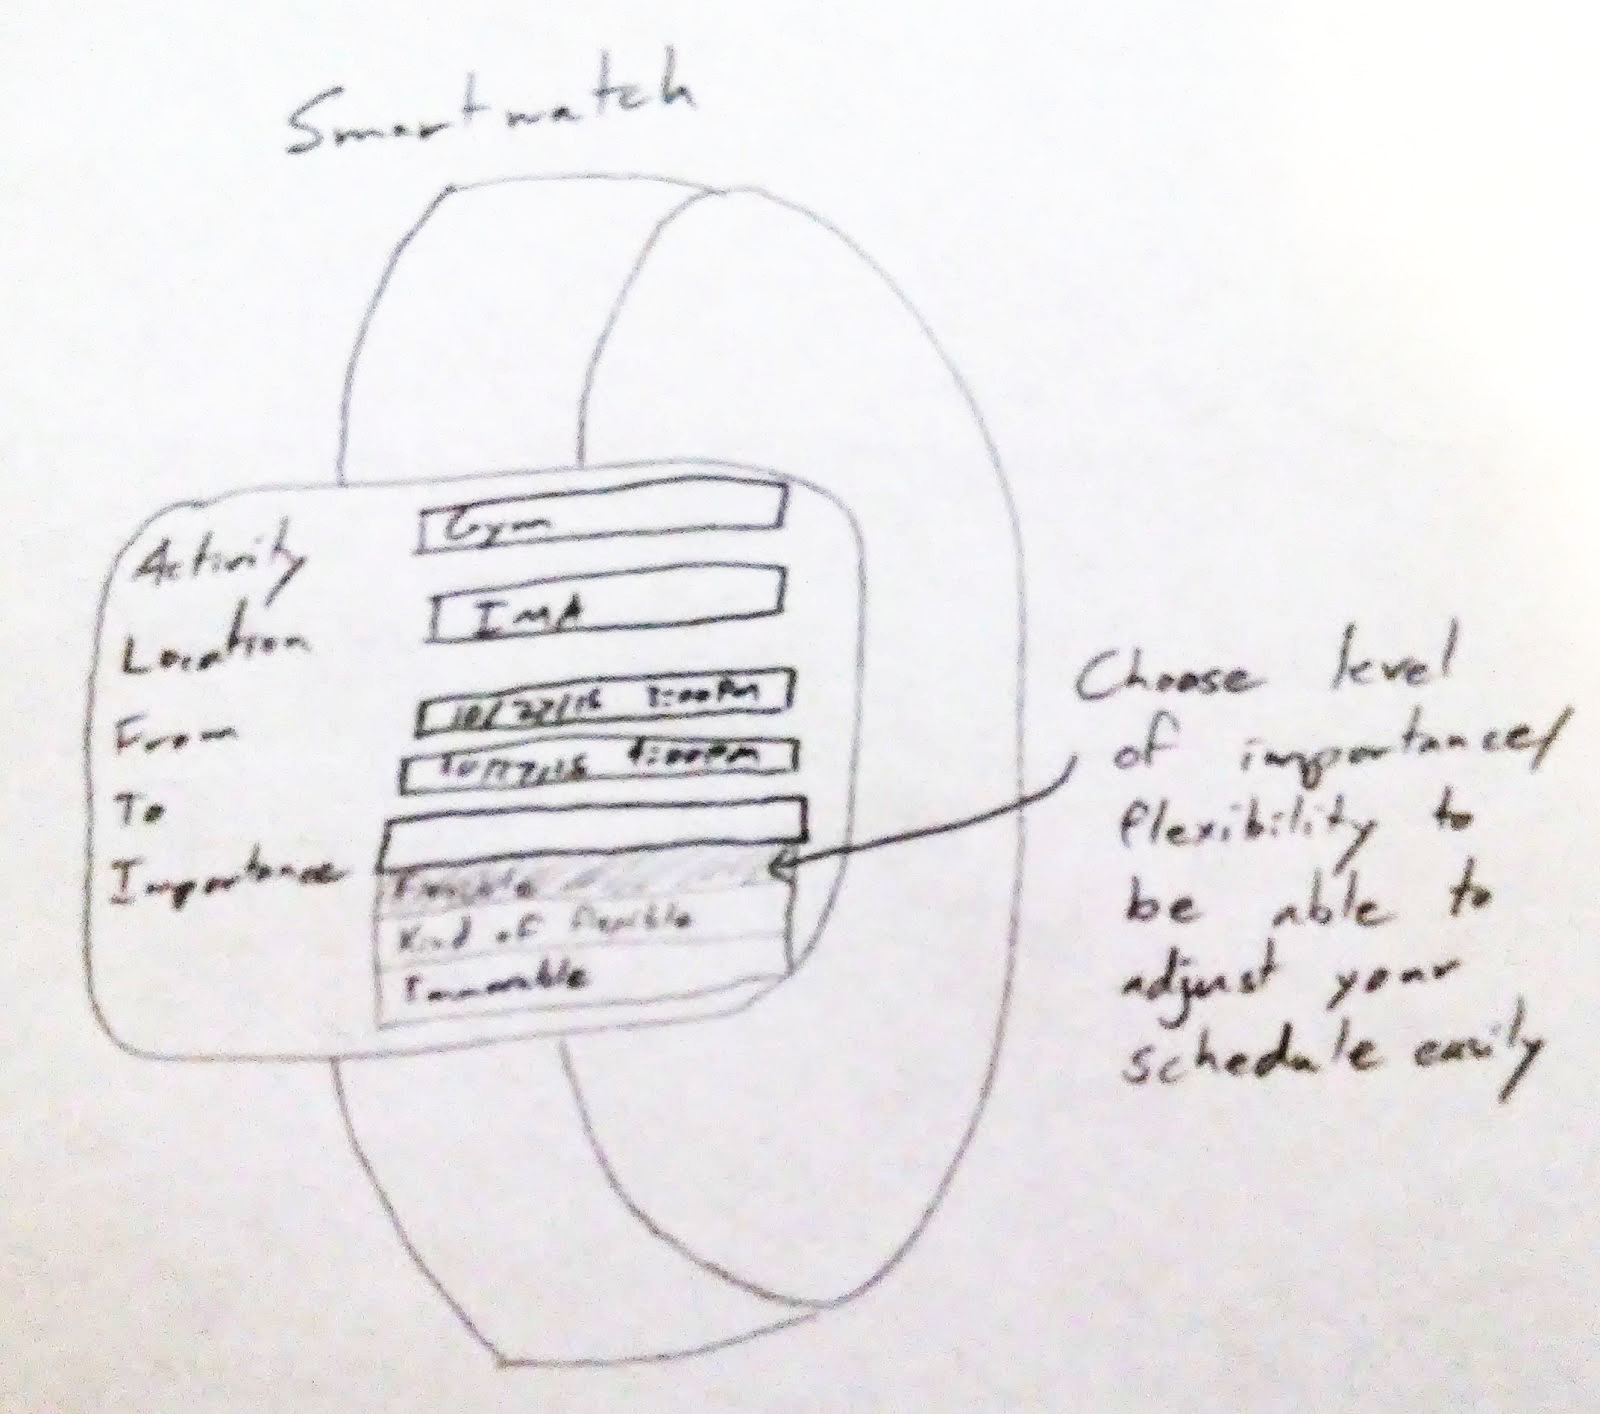 Smartwatch
Activity Gym
Location IMA
From 10/22/15 3:00PM
To 4:00PM
Importance
Flexible
Kind of flexible
Immovable
Choose level
of importance/
flexibility to
be able to
adjust your
schedule easily